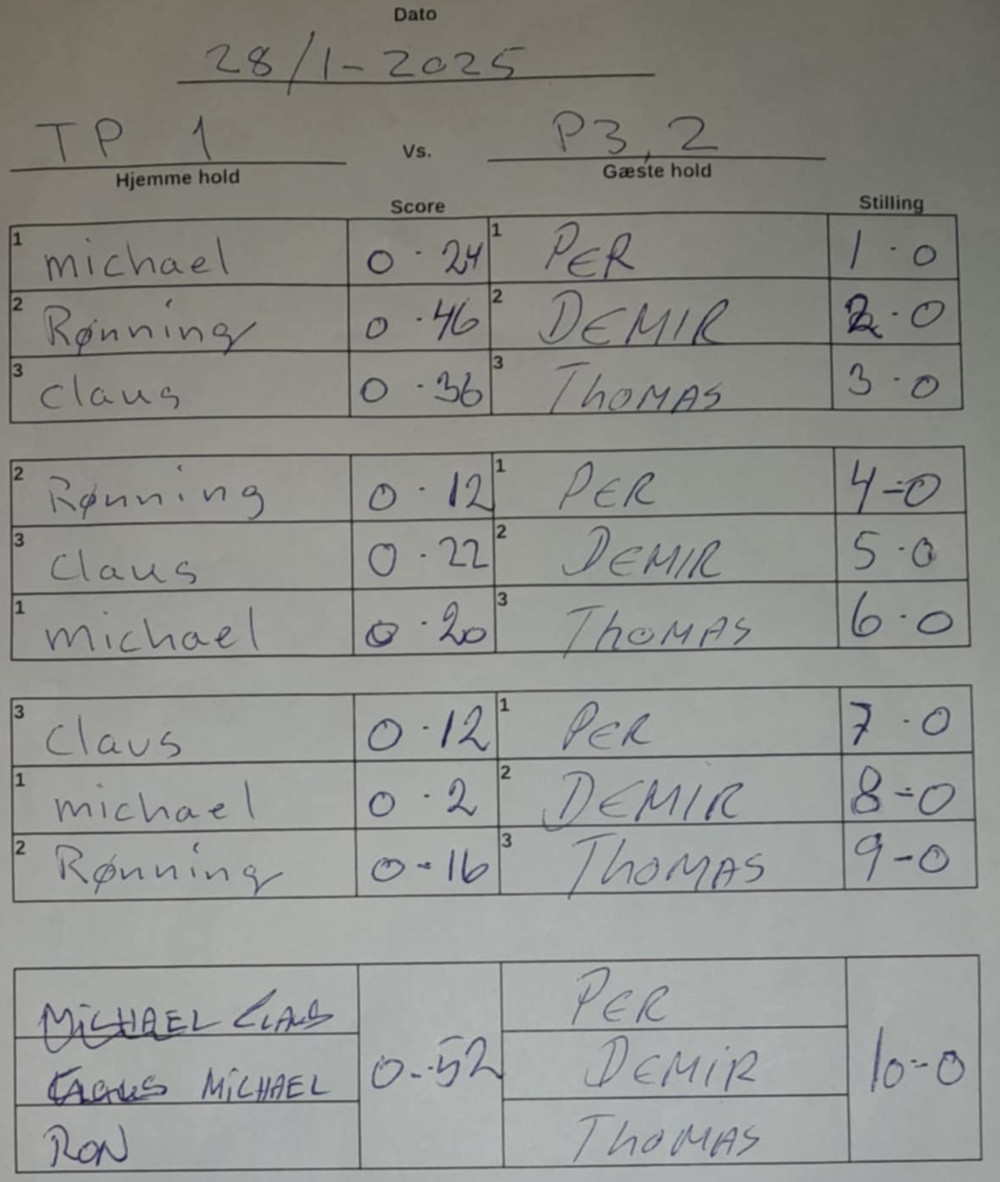 Dato
28/1-2025
TP 1 Vs. P3,2
Hjemme hold Gæste hold
Score Stilling
1 michael 0 · 24 1 PER 1 · 0
2 Rønning 0 · 46 2 DEMIR 2 · 0
3 Claus 0 · 36 3 THOMAS 3 · 0
2 Rønning 0 · 12 1 PER 4-0
3 Claus 0 · 22 2 DEMIR 5 · 0
1 michael 0 · 20 3 THOMAS 6 · 0
3 Claus 0 · 12 1 PER 7 · 0
1 michael 0 · 2 2 DEMIR 8-0
2 Rønning 0-16 3 THOMAS 9-0
MICHAEL CLAUS PER
CLAUS MICHAEL 0-52 DEMIR 10-0
RON THOMAS